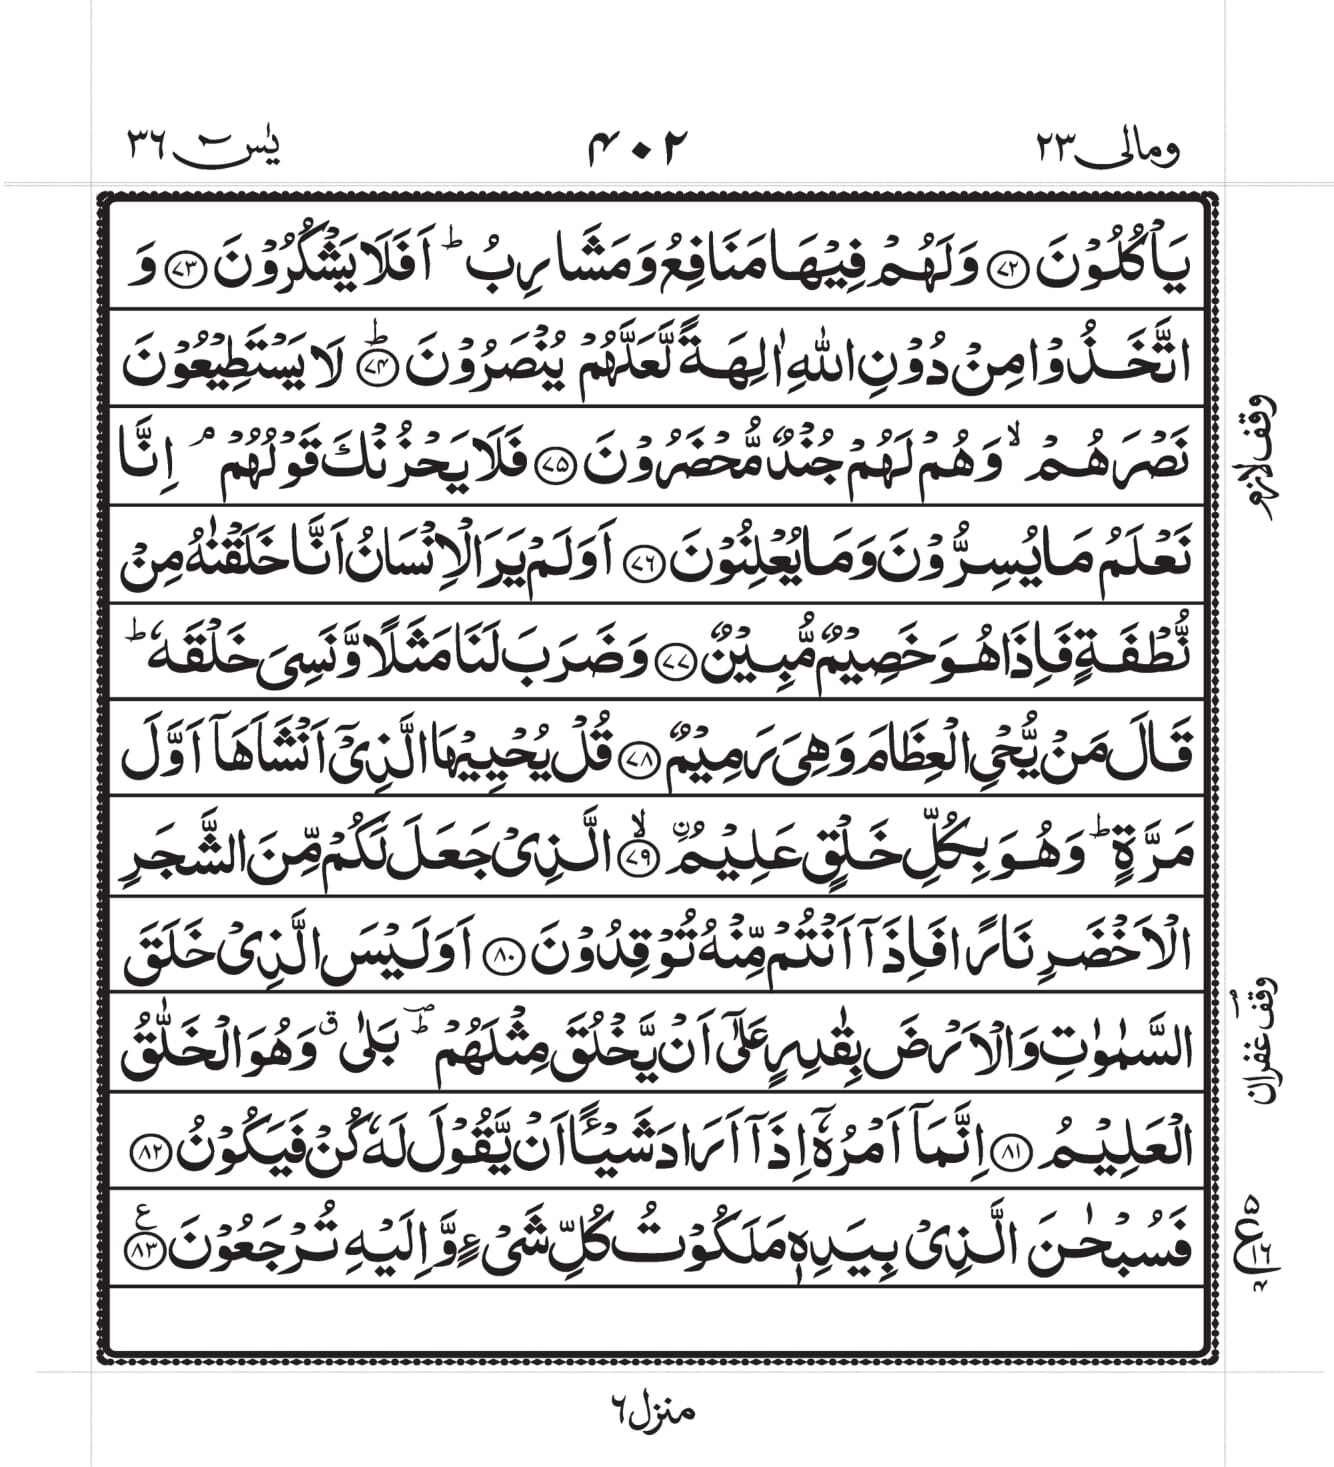 ومالی ٢٣
۴۰۲
يٰسٓ ٣٦
يَاۡكُلُوۡنَ ﴿۷۲﴾ وَلَهُمۡ فِيۡهَا مَنَافِعُ وَمَشَارِبُ ؕ اَفَلَا يَشۡكُرُوۡنَ ﴿۷۳﴾ وَ
اتَّخَذُوۡا مِنۡ دُوۡنِ اللّٰهِ اٰلِهَةً لَّعَلَّهُمۡ يُنۡصَرُوۡنَ ؕ ﴿۷۴﴾ لَا يَسۡتَطِيۡعُوۡنَ
نَصۡرَهُمۡ ۙ وَهُمۡ لَهُمۡ جُنۡدٌ مُّحۡضَرُوۡنَ ﴿۷۵﴾ فَلَا يَحۡزُنۡكَ قَوۡلُهُمۡ ۘ اِنَّا
نَعۡلَمُ مَا يُسِرُّوۡنَ وَمَا يُعۡلِنُوۡنَ ﴿۷۶﴾ اَوَلَمۡ يَرَ الۡاِنۡسَانُ اَنَّا خَلَقۡنٰهُ مِنۡ
نُّطۡفَةٍ فَاِذَا هُوَ خَصِيۡمٌ مُّبِيۡنٌ ﴿۷۷﴾ وَضَرَبَ لَنَا مَثَلًا وَّنَسِىَ خَلۡقَهٗ ؕ
قَالَ مَنۡ يُّحۡىِ الۡعِظَامَ وَهِىَ رَمِيۡمٌ ﴿۷۸﴾ قُلۡ يُحۡيِيۡهَا الَّذِىۡۤ اَنۡشَاَهَاۤ اَوَّلَ
مَرَّةٍ ؕ وَهُوَ بِكُلِّ خَلۡقٍ عَلِيۡمُۨ ۙ ﴿۷۹﴾ الَّذِىۡ جَعَلَ لَكُمۡ مِّنَ الشَّجَرِ
الۡاَخۡضَرِ نَارًا فَاِذَاۤ اَنۡتُمۡ مِّنۡهُ تُوۡقِدُوۡنَ ﴿۸۰﴾ اَوَلَيۡسَ الَّذِىۡ خَلَقَ
السَّمٰوٰتِ وَالۡاَرۡضَ بِقٰدِرٍ عَلٰٓى اَنۡ يَّخۡلُقَ مِثۡلَهُمۡ ؕ بَلٰى ق وَهُوَ الۡخَلّٰقُ
الۡعَلِيۡمُ ﴿۸۱﴾ اِنَّمَاۤ اَمۡرُهٗۤ اِذَاۤ اَرَادَ شَيۡـئًا اَنۡ يَّقُوۡلَ لَهٗ كُنۡ فَيَكُوۡنُ ﴿۸۲﴾
فَسُبۡحٰنَ الَّذِىۡ بِيَدِهٖ مَلَكُوۡتُ كُلِّ شَىۡءٍ وَّاِلَيۡهِ تُرۡجَعُوۡنَ ﴿۸۳﴾ ع
وقف لازم
وقف غفران
۵
ع
۱۶
۴
منزل ۶